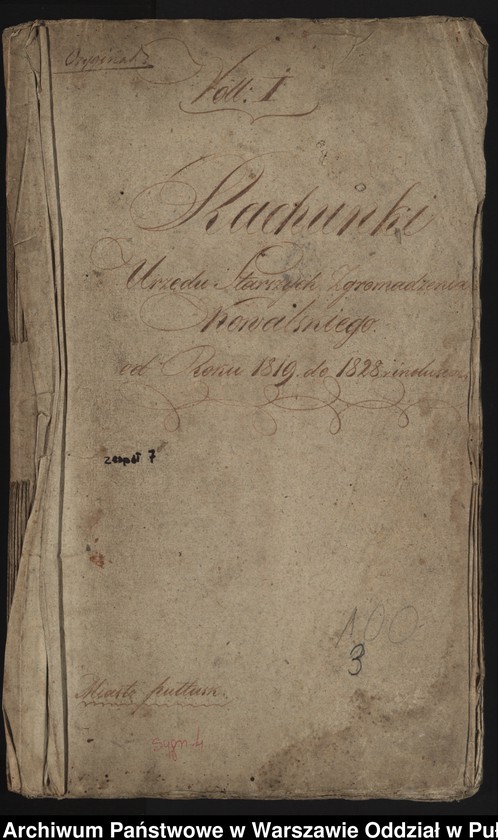 Oryginał.
Voll: I
Rachunki
Urzędu Starszych Zgromadzenia
Kowalskiego.
od Roku 1819. do 1828
zespół 7
100
3
Miasto
sygn. 4
Archiwum Państwowe w Warszawie Oddział w Puł